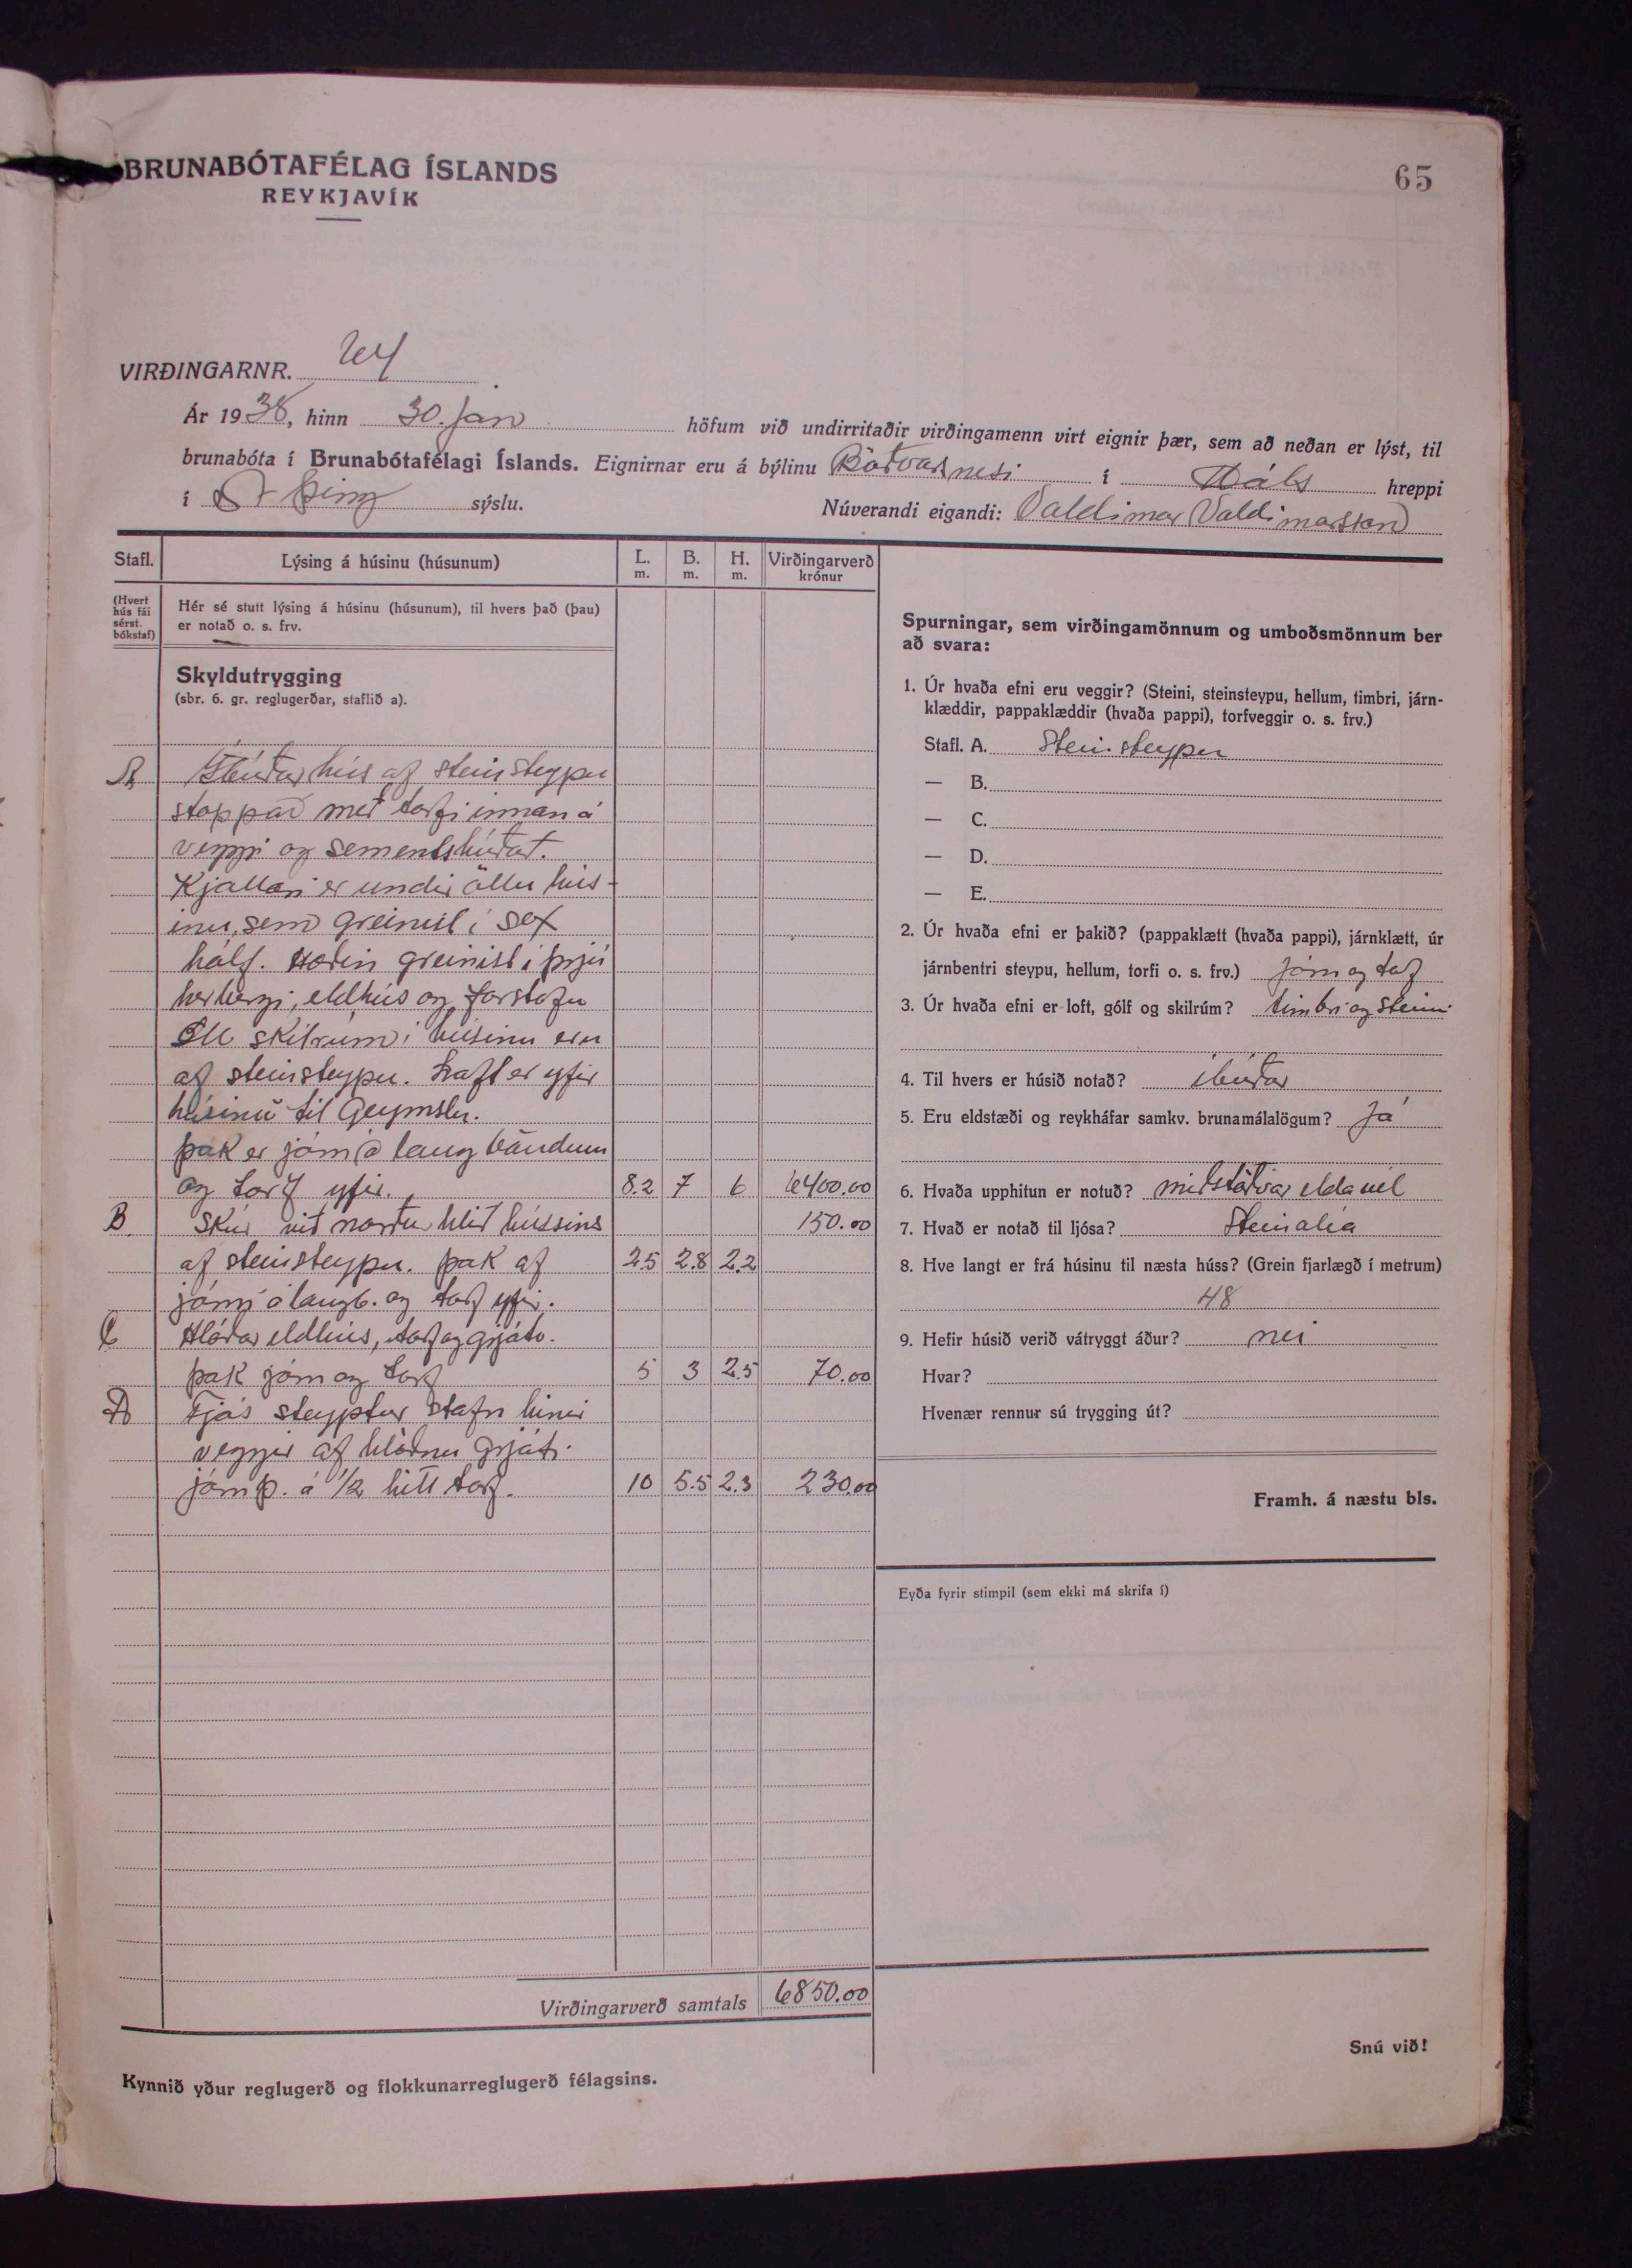 BRUNABÓTAFÉLAG ÍSLANDS
REYKJAVÍK
65
VIRÐINGARNR.
Ár 1938, hinn 30. jan höfum við undirritaðir virðingamenn virt eignir þær, sem að neðan er lýst, til
brunabóta í Brunabótafélagi Íslands. Eignirnar eru á býlinu Böðvarsnesi í Háls hreppi
í S Þing sýslu. Núverandi eigandi: Valdimar Valdimarsson
Stafl. Lýsing á húsinu (húsunum) L. m. B. m. H. m. Virðingarverð krónur
(Hvert hús fái sérst. bókstaf)
Hér sé stutt lýsing á húsinu (húsunum), til hvers það (þau)
er notað o. s. frv.
Skyldutrygging
(sbr. 6. gr. reglugerðar, staflið a).
A Íbúðarhús af steinsteypu
stoppað með torfi innan á
veggi og sementshúðað.
Kjallari er undir öllu hús-
inu, sem greinist í sex
hólf. Hæðin greinist í þrjú
herbergi, eldhús og forstofu
Öll skilrúm í húsinu eru
af steinsteypu. Loft er yfir
húsinu til Geymslu.
þak er járn á langböndum
og torf yfir. 8.2 7 6 6400.00
B Skúr við norður hlið hússins 150.00
af steinsteypu. þak af 2.5 2.8 2.2
járni á langb. og torf yfir.
C Hlóðar eldhús, torf og grjót.
þak járn og torf 5 3 2.5 70.00
D Fjós steyptur stafn hinir
veggir af hlöðnu grjóti.
járnþ. á 1/2 hitt torf. 10 5.5 2.3 230.00
Virðingarverð samtals 6850.00
Kynnið yður reglugerð og flokkunarreglugerð félagsins.
Spurningar, sem virðingamönnum og umboðsmönnum ber
að svara:
1. Úr hvaða efni eru veggir? (Steini, steinsteypu, hellum, timbri, járn-
klæddir, pappaklæddir (hvaða pappi), torfveggir o. s. frv.)
Stafl. A. Steinsteypu
— B.
— C.
— D.
— E.
2. Úr hvaða efni er þakið? (pappaklætt (hvaða pappi), járnklætt, úr
járnbentri steypu, hellum, torfi o. s. frv.) Járn og torf
3. Úr hvaða efni er loft, gólf og skilrúm? timbri og steini
4. Til hvers er húsið notað? íbúðar
5. Eru eldstæði og reykháfar samkv. brunamálalögum? Já
6. Hvaða upphitun er notuð? miðstöðvar eldavél
7. Hvað er notað til ljósa? Steinolía
8. Hve langt er frá húsinu til næsta húss? (Grein fjarlægð í metrum)
48
9. Hefir húsið verið vátryggt áður? nei
Hvar?
Hvenær rennur sú trygging út?
Framh. á næstu bls.
Eyða fyrir stimpil (sem ekki má skrifa í)
Snú við!